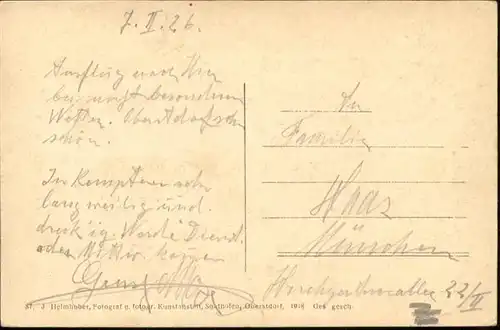 7. II. 26.
Ausflug nach
bei nicht besonderem
Wetter. Oberstdorf sehr
schön.
In Kempten sehr
langweilig und
dreckig. Werde Dienst.
oder Mittw. kommen
Gruß
An
Familie
Haas
München
Hirschgartenallee 22/II
J. Heimhuber, Fotograf u. fotogr. Kunstanstalt, Sonthofen, Oberstdorf, Ges. gesch.